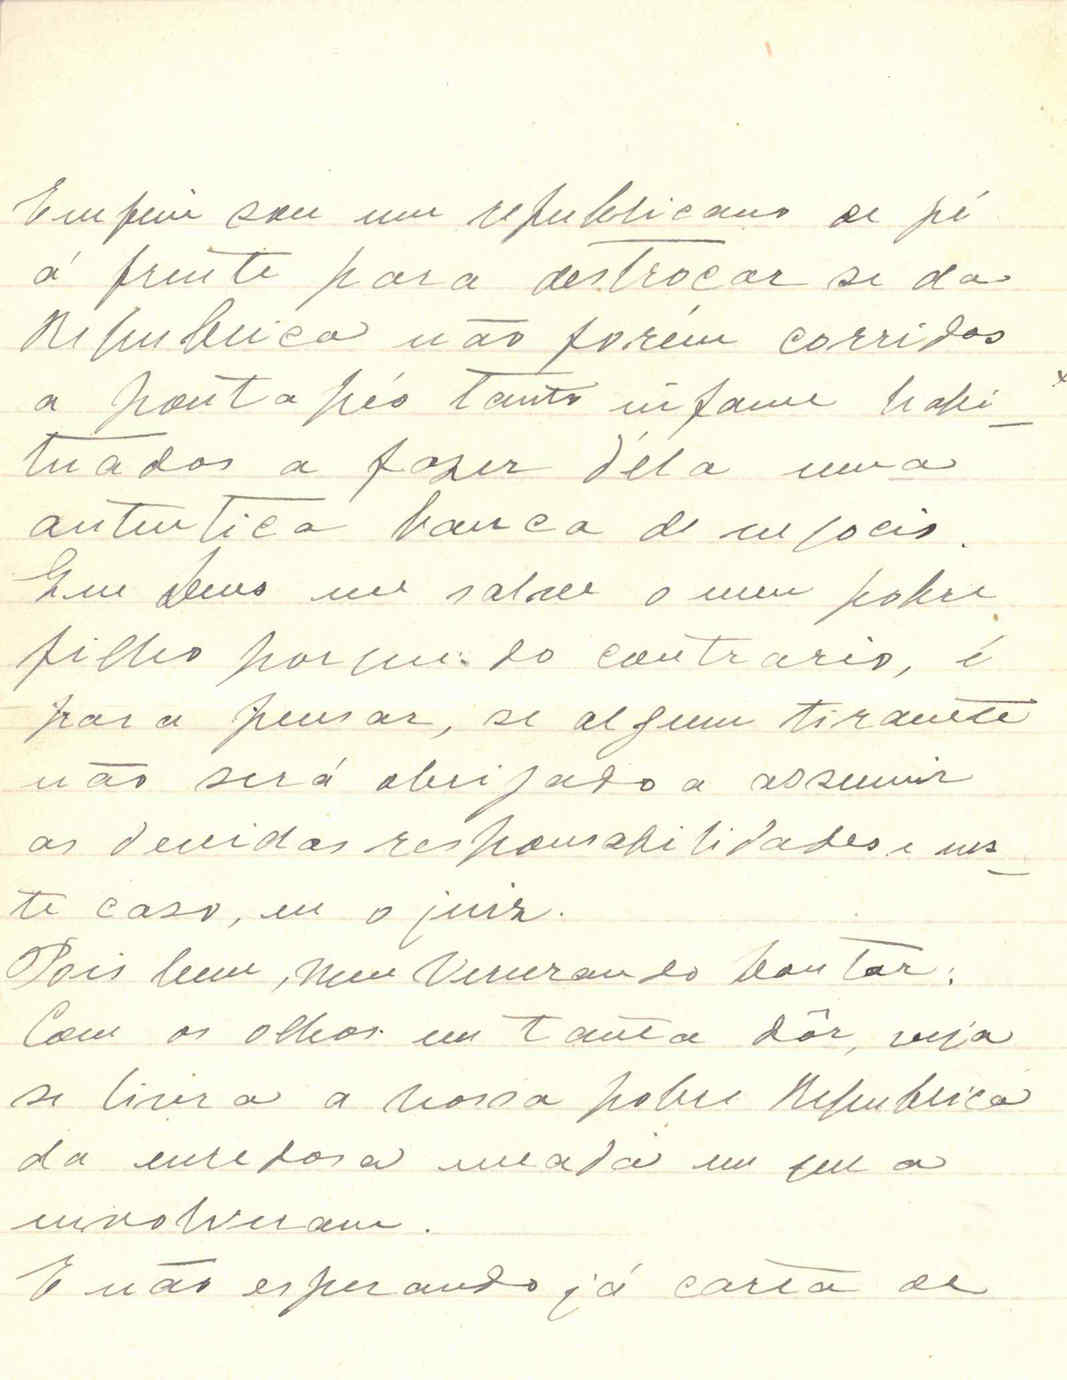 Emfim sou um republicano de pé
á frente para destroçar se da
Republica não forem corridos
a pontapés tanto infame habi-
tuados a fazer déla uma
autentica banca de negocio.
Que Deus me salve o meu pobre
filho porque do contrario, é
para pensar, se algum tiranete
não será obrigado a assumir
as devidas responsabilidades e nes-
te caso, eu o juiz.
Pois bem, meu Venerando Doutor:
Com os olhos em tanta dôr, veja
se livra a nossa pobre Republica
da enredosa meada em que a
envolveram.
E não esperando já carta de